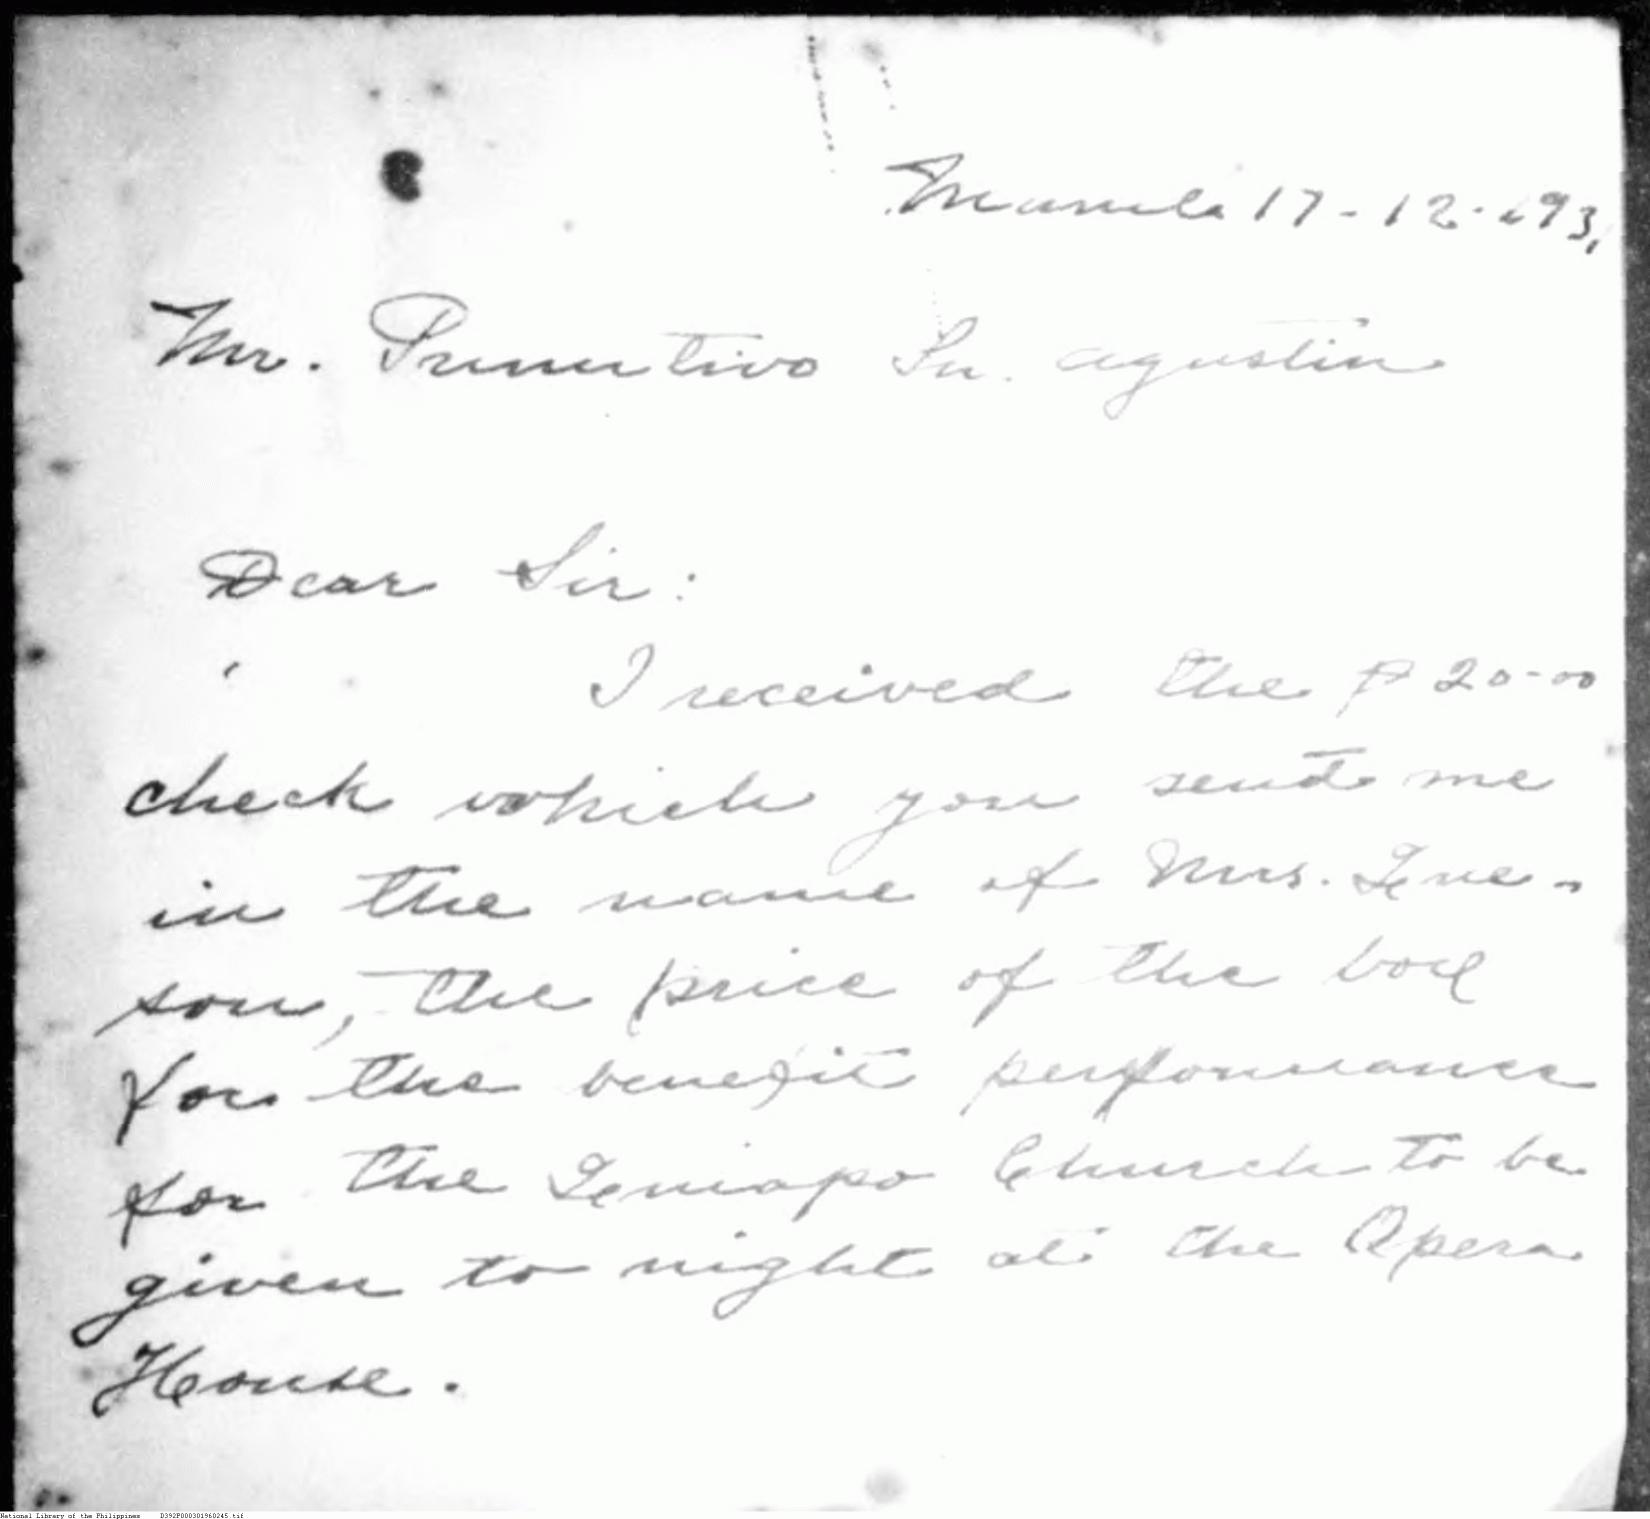 Manila 17-12-193,
Mr. Primitivo Sn. Agustin
Dear Sir:
I received the ₱ 20-00
check which you send me
in the name of Mrs. Que-
son, the price of the box
for the benefit performance
for the Quiapo Church to be
given to night at the Opera
House.
National Library of the Philippines D392F000301960245.tif